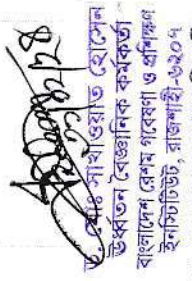 ড. মোঃ সাখাওয়াত হোসেন
উর্ধ্বতন বৈজ্ঞানিক কর্মকর্তা
বাংলাদেশ রেশম গবেষণা ও প্রশিক্ষণ
ইনস্টিটিউট, রাজশাহী-৬২০৭